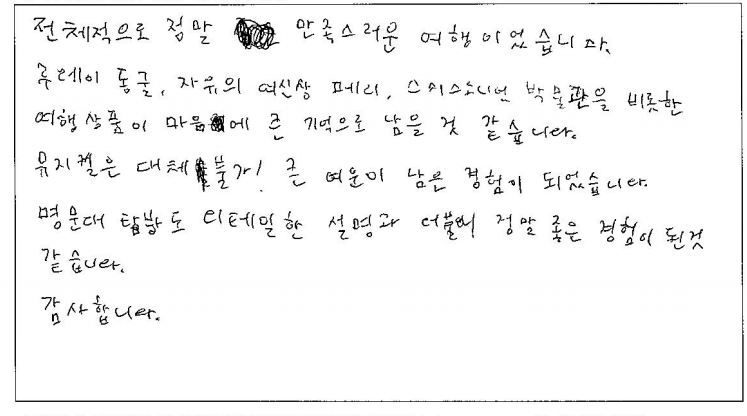 전체적으로 정말 만족스러운 여행이었습니다.
루레이 동굴, 자유의 여신상 페리, 스미소니언 박물관을 비롯한
여행상품이 마음에 큰 기억으로 남을 것 같습니다.
뮤지컬은 대체불가! 큰 여운이 남은 경험이 되었습니다.
명문대 탐방도 디테일한 설명과 더불어 정말 좋은 경험이 된것
같습니다.
감사합니다.